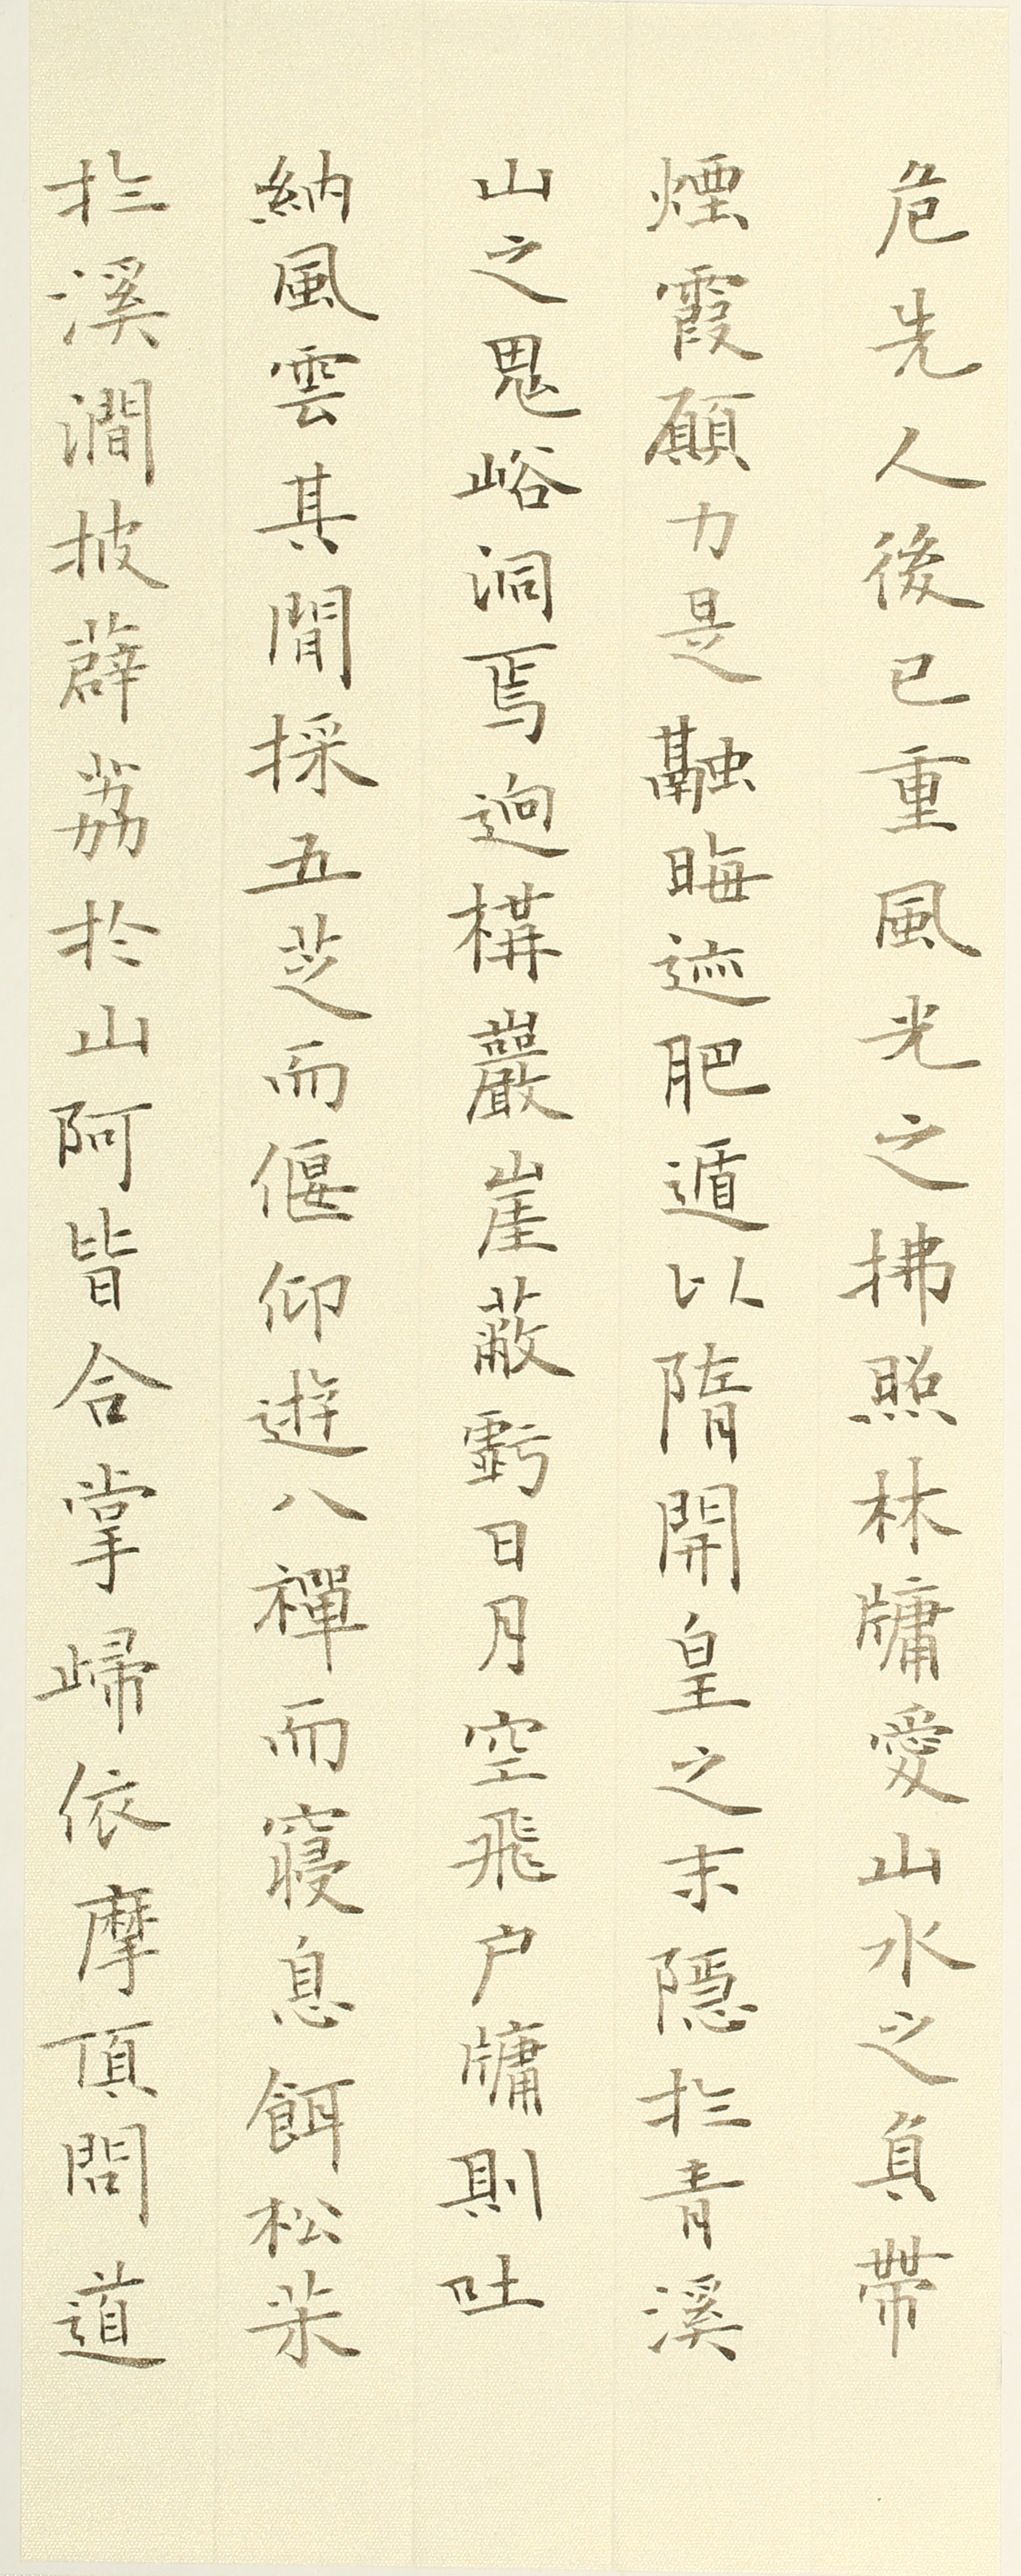 危先人後已重風光之拂照林牗愛山水之負帶
煙霞願力是融晦迹肥遁以隋開皇之末隱於青溪
山之鬼峪洞焉迥構巖崖蔽虧日月空飛户牗則吐
納風雲其間採五芝而偃仰遊八禪而寢息餌松茮
於溪澗披薜荔於山阿皆合掌歸依摩頂問道